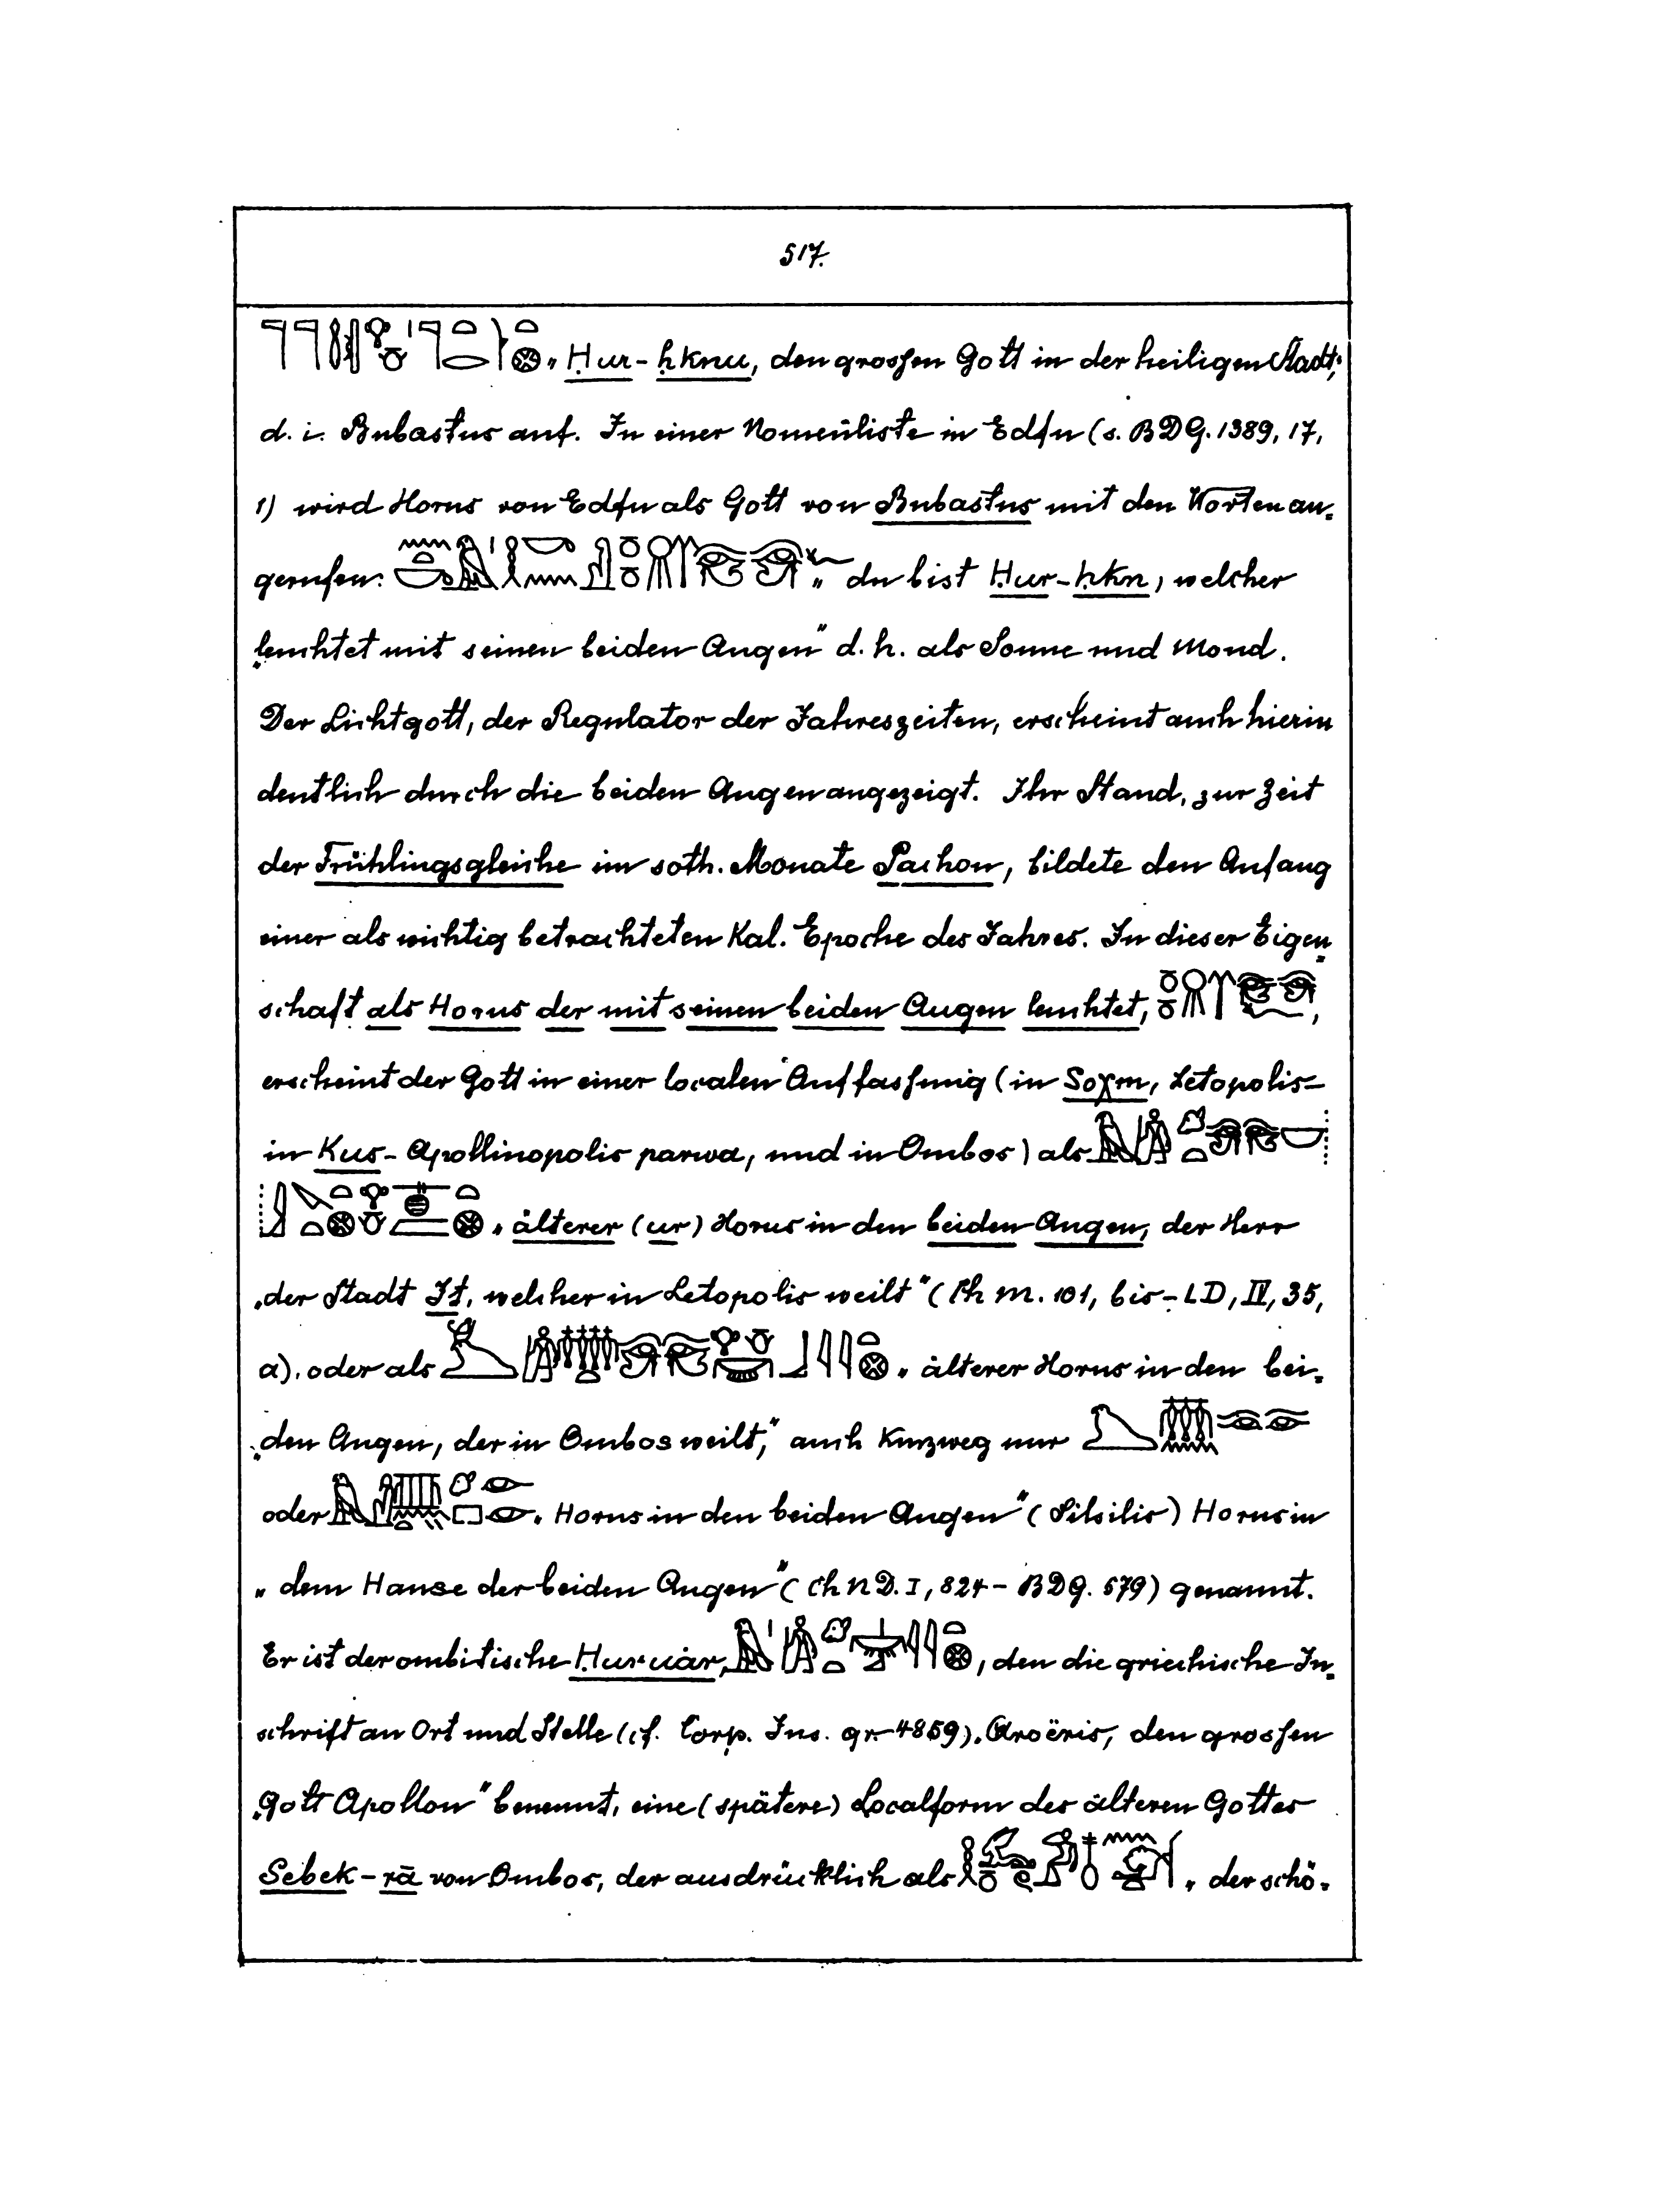 517.
„Ḥur-ḥknu, den grossen Gott in der heiligen Stadt,"
d. i. Bubastus auf. In einer Nomenliste in Edfu (s. BDG. 1389, 17,
1) wird Horus von Edfu als Gott von Bubastus mit den Worten an-
gerufen: „du bist Ḥur-ḥkn, welcher
„leuchtet mit seinen beiden Augen" d. h. als Sonne und Mond.
Der Lichtgott, der Regulator der Jahreszeiten, erscheint auch hierin
deutlich durch die beiden Augen angezeigt. Ihr Stand, zur Zeit
der Frühlingsgleiche im soth. Monate Pachon, bildete den Anfang
einer als wichtig betrachteten Kal. Epoche des Jahres. In dieser Eigen-
schaft als Horus der mit seinen beiden Augen leuchtet, ,
erscheint der Gott in einer localen Auffassung (in Soχm, Letopolis-
in Kus- Apollinopolis parva, und in Ombos) als
„älterer (ur) Horus in den beiden Augen, der Herr
„der Stadt , welcher in Letopolis weilt" ( m. 101, bis - LD, IV, 35,
a). oder als „älterer Horus in den bei-
„den Augen, der in Ombos weilt," auch kurzweg nur
oder „Horus in den beiden Augen" (Silsilis) Horus in
„dem Hause der beiden Augen" (Ch ND. I, 824 - BDG. 579) genannt.
Er ist der ombitische Ḥur-uār, , den die griechische In-
schrift an Ort und Stelle (cf. Corp. Ins. gr. 4859) „Aroëris, den grossen
„Gott Apollon" benennt, eine (spätere) Localform des älteren Gottes
Sebek-rā von Ombos, der ausdrücklich als „der schö-